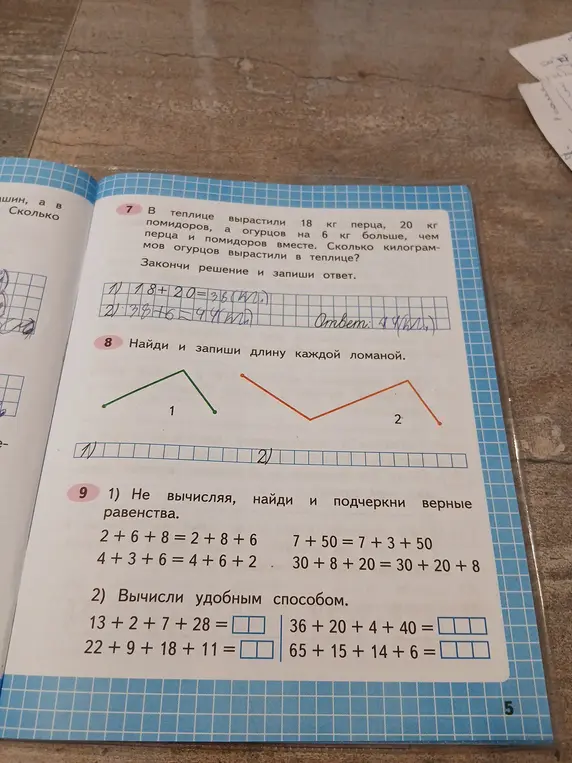 шин, а в
Сколько
7 В теплице вырастили 18 кг перца, 20 кг
помидоров, а огурцов на 6 кг больше, чем
перца и помидоров вместе. Сколько килограм-
мов огурцов вырастили в теплице?
Закончи решение и запиши ответ.
1) 18+20=
2) 38+6=44(кг.) Ответ: 44(кг.)
8 Найди и запиши длину каждой ломаной.
1
2
1) 2)
9 1) Не вычисляя, найди и подчеркни верные
равенства.
2 + 6 + 8 = 2 + 8 + 6 7 + 50 = 7 + 3 + 50
4 + 3 + 6 = 4 + 6 + 2 30 + 8 + 20 = 30 + 20 + 8
2) Вычисли удобным способом.
13 + 2 + 7 + 28 = 36 + 20 + 4 + 40 =
22 + 9 + 18 + 11 = 65 + 15 + 14 + 6 =
5